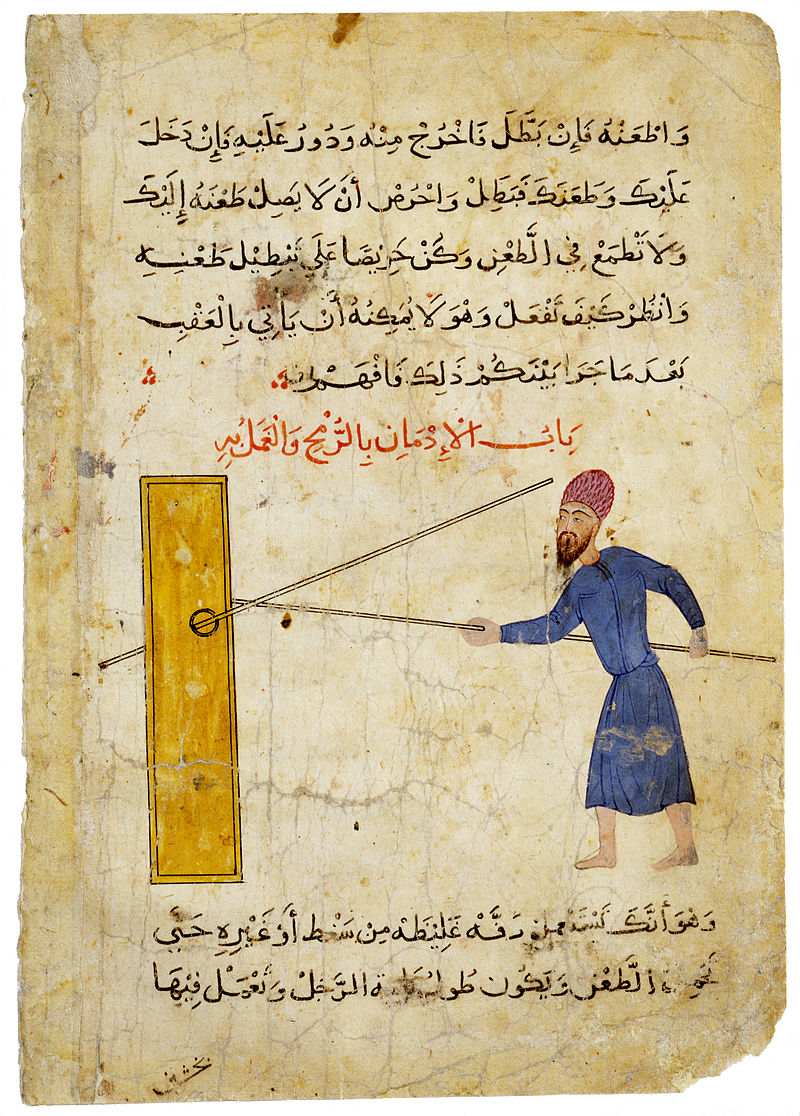 وَاطْعَنْهُ فَإِنْ بَطَّلَ فَاخْرُجْ مِنْهُ وَدُورُ عَلَيْهِ فَإِنْ دَخَلَ
عَلَيْكَ وَطَعَنَكَ فَبَطِّلْ وَاحْرُصْ أَنْ لَا يَصِلْ طَعْنَهُ إِلَيْكَ
وَلَا تَطْمَعْ فِي الطَّعْنِ وَكُنْ حَرِيصًا عَلَى تَبْطِيْل طَعْنِهِ
وَانْظُرْ كَيْفَ تَفْعَلْ وَهُوَ لَا يُمْكِنُهُ أَنْ يَأْتِي بِالْعَقْبِ
بَعْدَ مَا جَرَا بَيْنَكُمْ ذَلِكَ فَافْهَمْ
بَابُ الْإِدْمَانِ بِالرُّمْحِ وَالْعَمَلُ بِهِ
وَهْوَ أَنَّكَ دَفَّهْ غَلِيظَهْ مِنْ أَوْ غَيْرِهِ حَتَّى
الطَّعْنِ وَيَكُونَ الرَّجُلْ وَتُعْمَلْ فِيْهَا